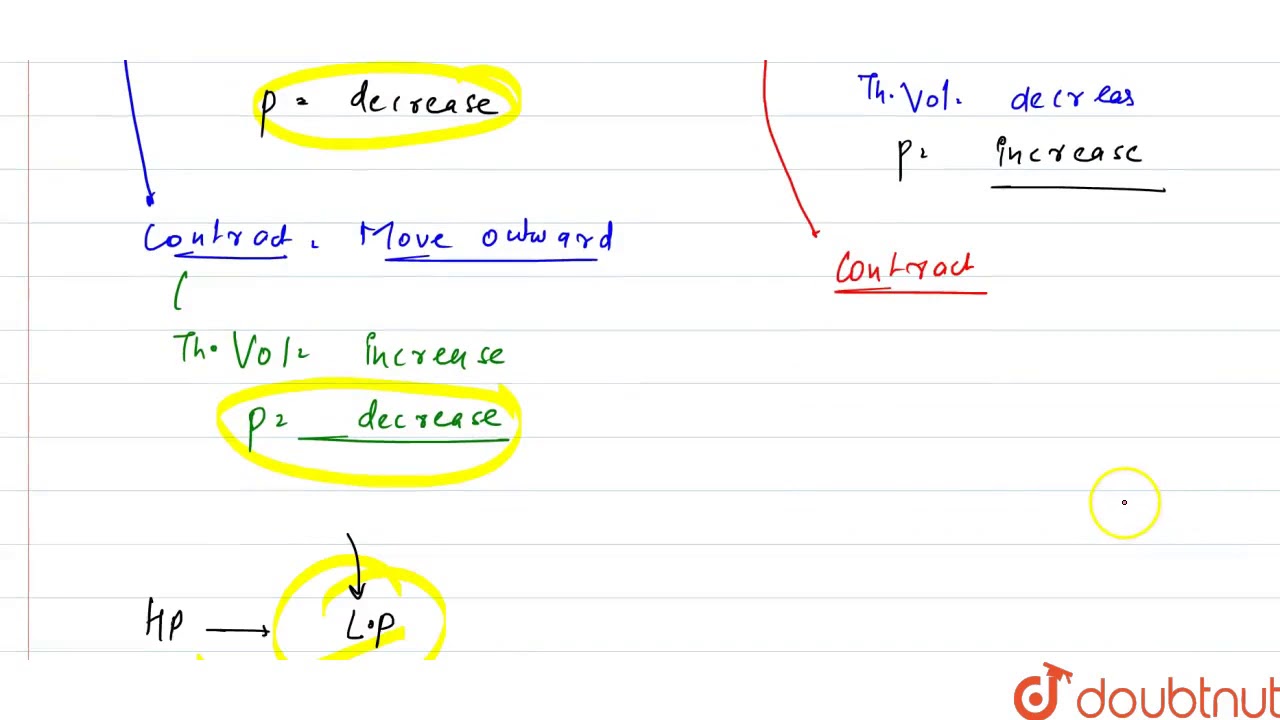 P = decrease
Contract . Move outward
(
Th. Vol = increase
P = decrease
HP → L.P
Th. Vol = decreas
P = increase
Contract
doubtnut